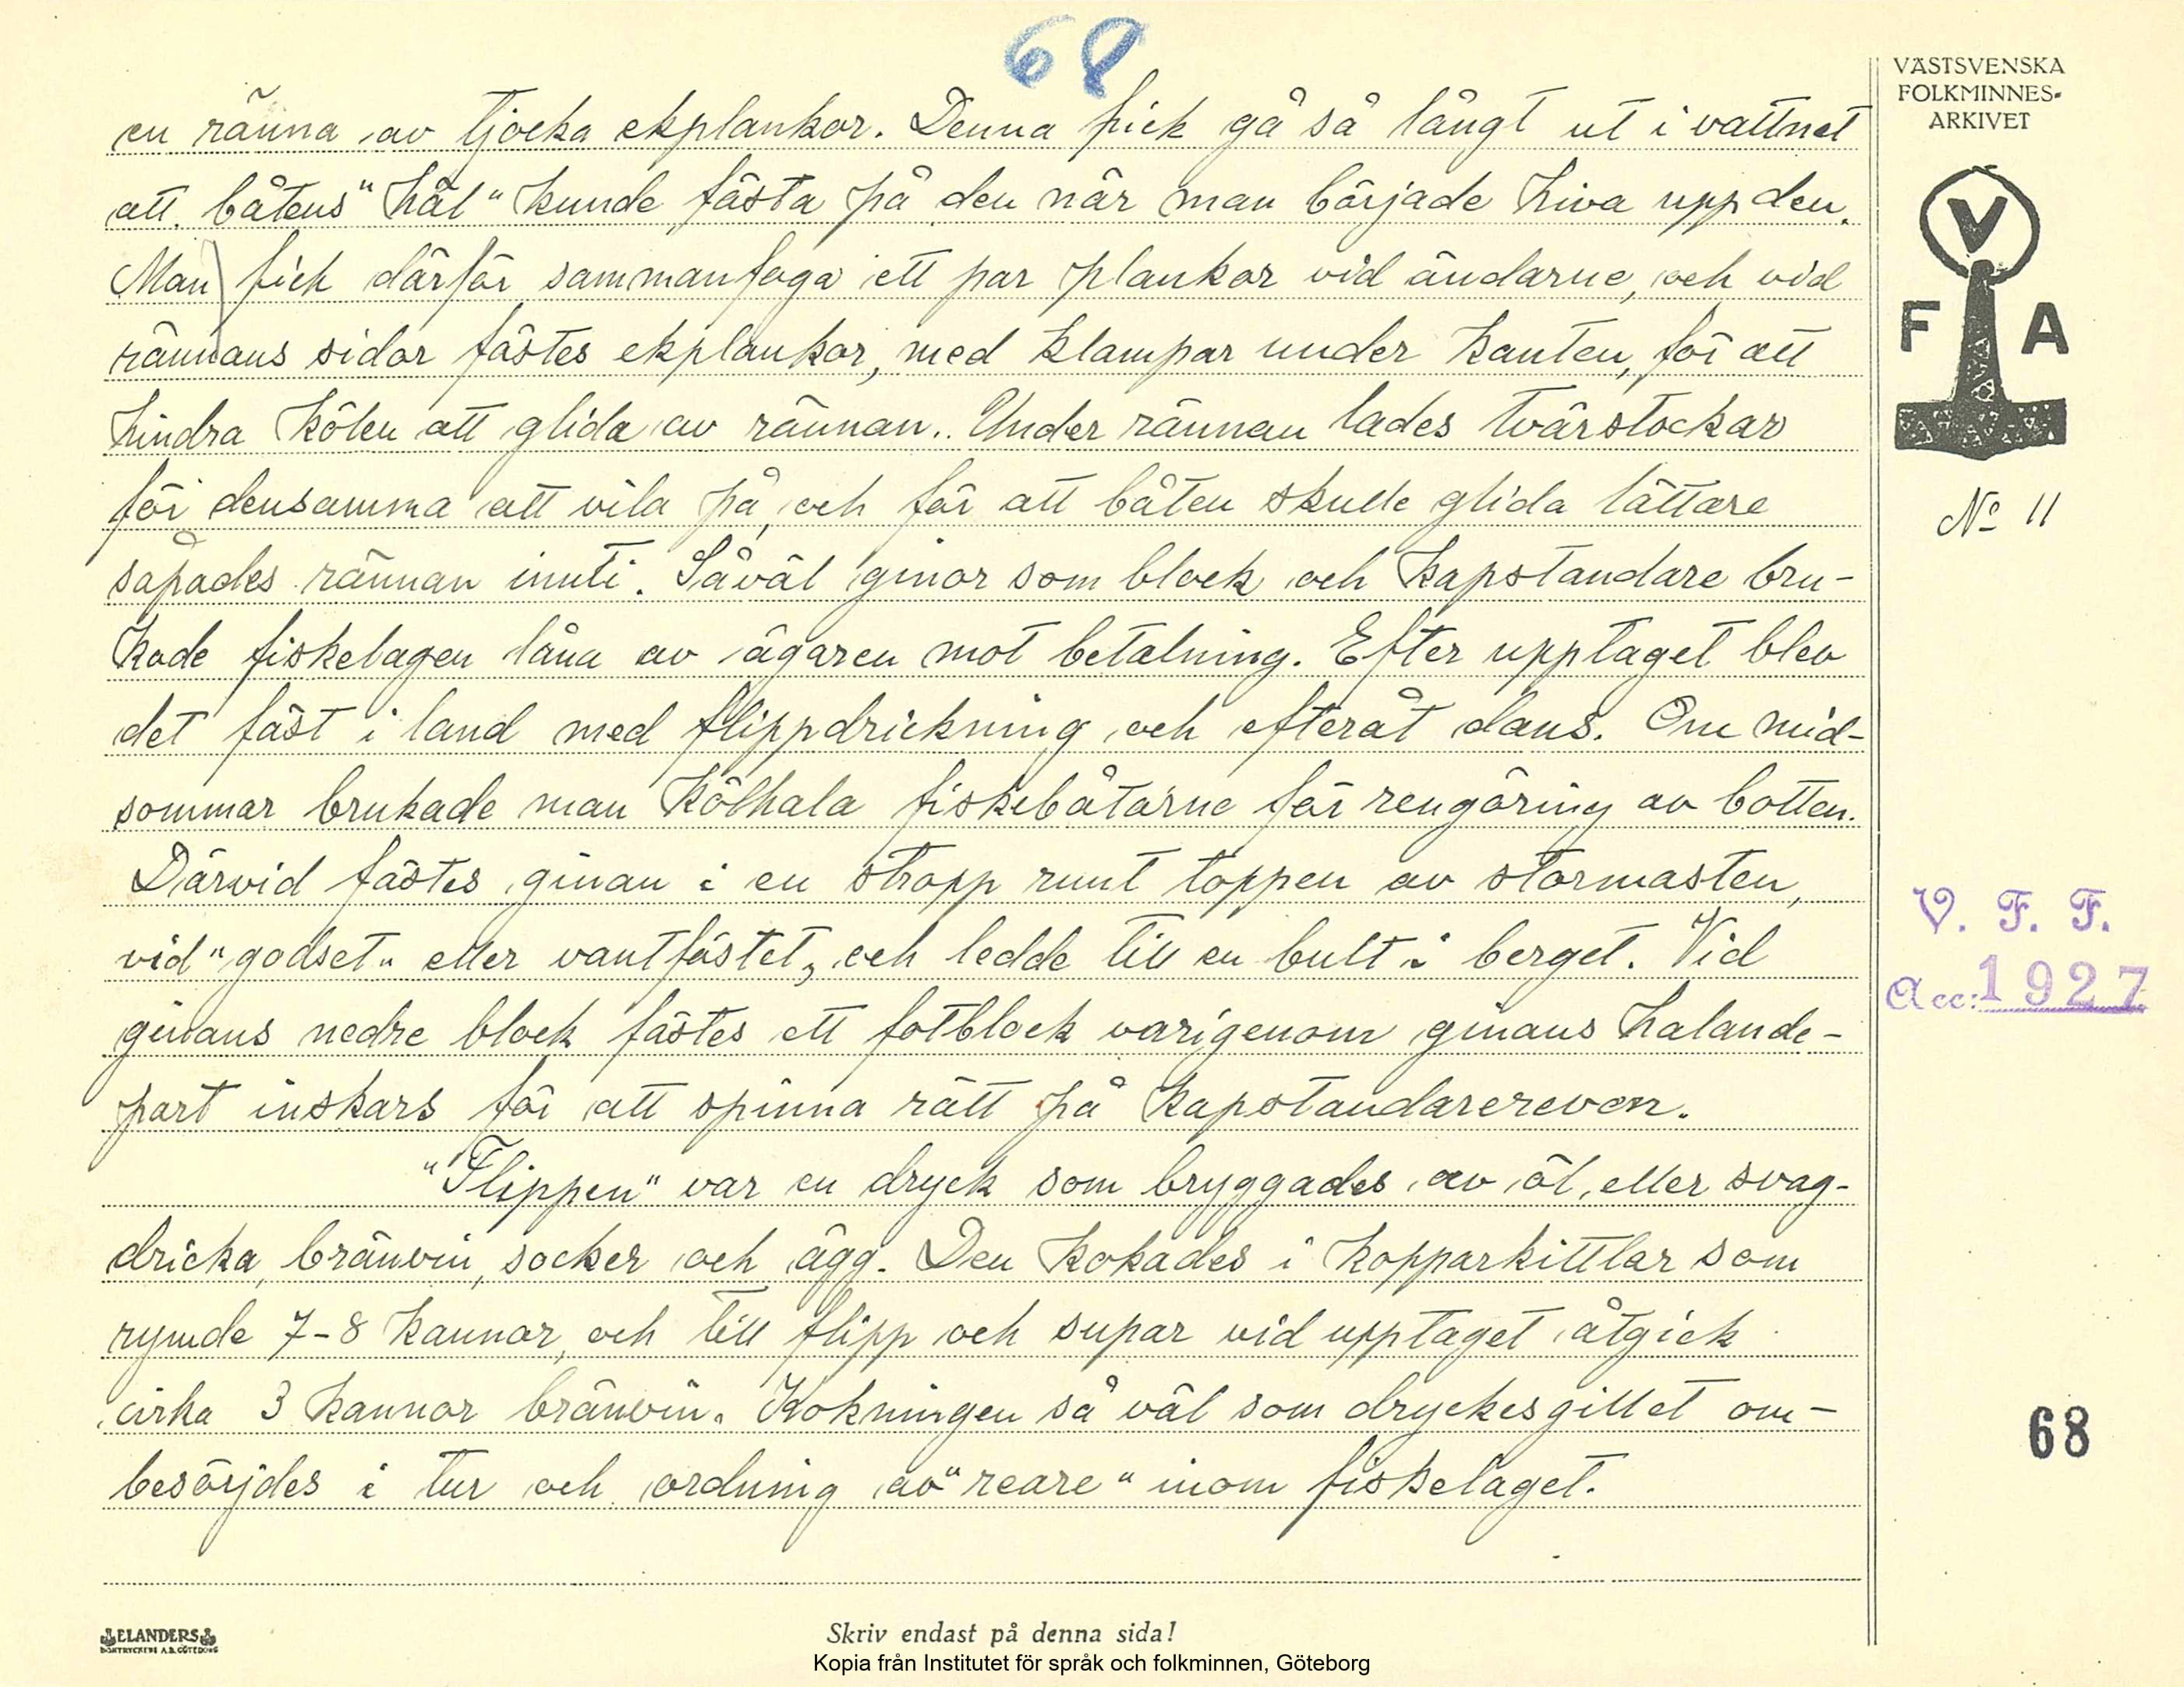 68
VÄSTSVENSKA
FOLKMINNES-
ARKIVET
V
F A
en ränna av tjocka ekplankor. Denna fick gå så långt ut i vattnet
att båtens "häl" kunde fästa på den när man började hiva upp den.
Man fick därför sammanfoga ett par plankor vid ändarne, och vid
rännans sidor fästes ekplankor, med klampar under kanten, för att
hindra kölen att glida av rännan. Under rännan lades tvärstockar
för densamma att vila på, och för att båten skulle glida lättare
såpades rännan inuti. Såväl ginor som block och kapstandare bru-
kade fiskelagen låna av ägaren mot betalning. Efter upptaget blev
det fäst i land med flippdrickning och efteråt dans. Om mid-
sommar brukade man kölhala fiskebåtarne för rengöring av botten.
Därvid fästes ginan i en stropp runt toppen av stormasten,
vid "godset" eller vantfästet, och ledde till en bult i berget. Vid
ginans nedre block fästes ett fotblock varigenom ginans halande-
part inskars för att spinna rätt på kapstandarereven.
"Flippen" var en dryck som bryggades av öl, eller svag-
dricka, bränvin, socker och ägg. Den kokades i kopparkittlar som
rymde 7-8 kannor, och till flipp och supar vid upptaget åtgick
cirka 3 kannor bränvin. Kokningen så väl som dryckesgillet om-
besörjdes i tur och ordning av "reare" inom fiskelaget.
No 11
V. F. F.
Acc: 1927
68
ELANDERS
BOKTRYCKERI A.B. GÖTEBORG
Skriv endast på denna sida!
Kopia från Institutet för språk och folkminnen, Göteborg